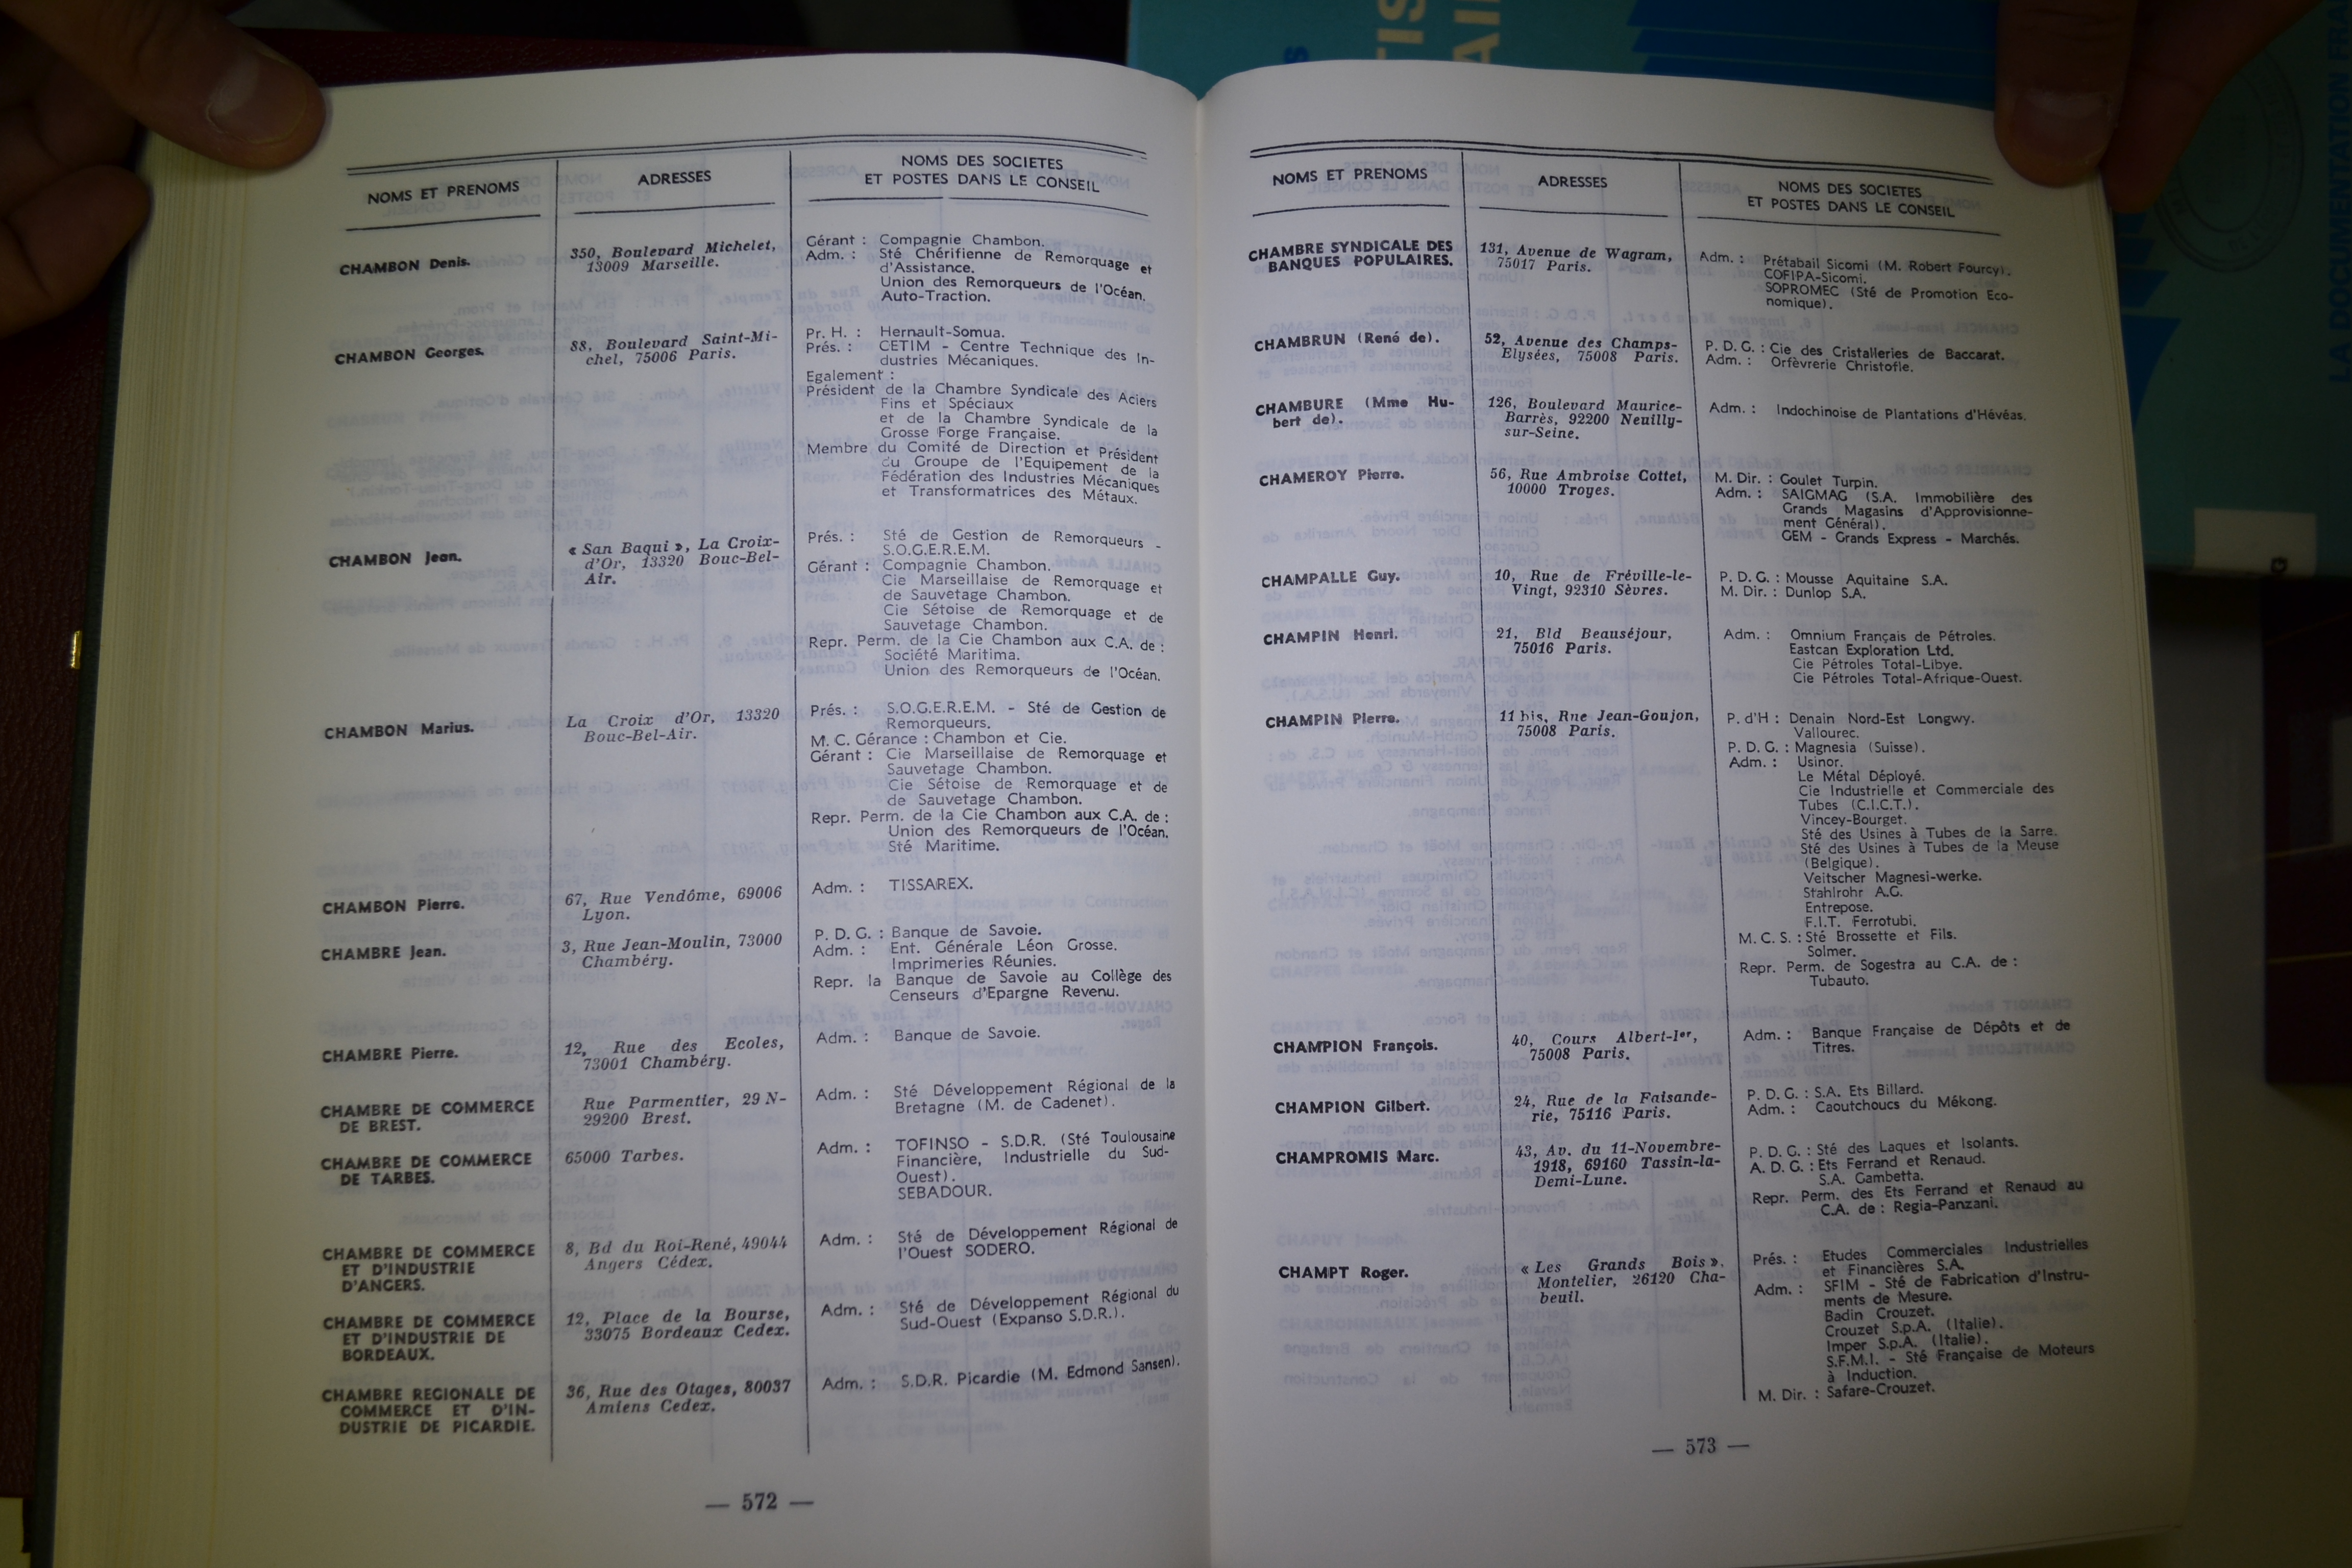 NOMS ET PRENOMS
ADRESSES
NOMS DES SOCIETES
ET POSTES DANS LE CONSEIL
CHAMBON Denis.
350, Boulevard Michelet,
13009 Marseille.
Gérant : Compagnie Chambon.
Adm. : Sté Chérifienne de Remorquage et
d'Assistance.
Union des Remorqueurs de l'Océan.
Auto-Traction.
CHAMBON Georges.
88, Boulevard Saint-Mi-
chel, 75006 Paris.
Pr. H. : Hernault-Somua.
Prés. : CETIM - Centre Technique des In-
dustries Mécaniques.
Egalement :
Président de la Chambre Syndicale des Aciers
Fins et Spéciaux
et de la Chambre Syndicale de la
Grosse Forge Française.
Membre du Comité de Direction et Président
du Groupe de l'Equipement de la
Fédération des Industries Mécaniques
et Transformatrices des Métaux.
CHAMBON Jean.
« San Baqui », La Croix-
d'Or, 13320 Bouc-Bel-
Air.
Prés. : Sté de Gestion de Remorqueurs -
S.O.G.E.R.E.M.
Gérant : Compagnie Chambon.
Cie Marseillaise de Remorquage et
de Sauvetage Chambon.
Cie Sétoise de Remorquage et de
Sauvetage Chambon.
Repr. Perm. de la Cie Chambon aux C.A. de :
Société Maritima.
Union des Remorqueurs de l'Océan.
CHAMBON Marius.
La Croix d'Or, 13320
Bouc-Bel-Air.
Prés. : S.O.G.E.R.E.M. - Sté de Gestion de
Remorqueurs.
M. C. Gérance : Chambon et Cie.
Gérant : Cie Marseillaise de Remorquage et
Sauvetage Chambon.
Cie Sétoise de Remorquage et de
de Sauvetage Chambon.
Repr. Perm. de la Cie Chambon aux C.A. de :
Union des Remorqueurs de l'Océan.
Sté Maritime.
CHAMBON Pierre.
67, Rue Vendôme, 69006
Lyon.
Adm. : TISSAREX.
CHAMBRE Jean.
3, Rue Jean-Moulin, 73000
Chambéry.
P. D. G. : Banque de Savoie.
Adm. : Ent. Générale Léon Grosse.
Imprimeries Réunies.
Repr. la Banque de Savoie au Collège des
Censeurs d'Epargne Revenu.
CHAMBRE Pierre.
12, Rue des Ecoles,
73001 Chambéry.
Adm. : Banque de Savoie.
CHAMBRE DE COMMERCE
DE BREST.
Rue Parmentier, 29 N-
29200 Brest.
Adm. : Sté Développement Régional de la
Bretagne (M. de Cadenet).
CHAMBRE DE COMMERCE
DE TARBES.
65000 Tarbes.
Adm. : TOFINSO - S.D.R. (Sté Toulousaine
Financière, Industrielle du Sud-
Ouest).
SEBADOUR.
CHAMBRE DE COMMERCE
ET D'INDUSTRIE
D'ANGERS.
8, Bd du Roi-René, 49044
Angers Cédex.
Adm. : Sté de Développement Régional de
l'Ouest SODERO.
CHAMBRE DE COMMERCE
ET D'INDUSTRIE DE
BORDEAUX.
12, Place de la Bourse,
33075 Bordeaux Cedex.
Adm. : Sté de Développement Régional du
Sud-Ouest (Expanso S.D.R.).
CHAMBRE REGIONALE DE
COMMERCE ET D'IN-
DUSTRIE DE PICARDIE.
36, Rue des Otages, 80037
Amiens Cedex.
Adm. : S.D.R. Picardie (M. Edmond Sansen).
— 572 —
NOMS ET PRENOMS
ADRESSES
NOMS DES SOCIETES
ET POSTES DANS LE CONSEIL
CHAMBRE SYNDICALE DES
BANQUES POPULAIRES.
131, Avenue de Wagram,
75017 Paris.
Adm. : Prétabail Sicomi (M. Robert Fourcy).
COFIPA-Sicomi.
SOPROMEC (Sté de Promotion Eco-
nomique).
CHAMBRUN (René de).
52, Avenue des Champs-
Elysées, 75008 Paris.
P. D. G. : Cie des Cristalleries de Baccarat.
Adm. : Orfèvrerie Christofle.
CHAMBURE (Mme Hu-
bert de).
126, Boulevard Maurice-
Barrès, 92200 Neuilly-
sur-Seine.
Adm. : Indochinoise de Plantations d'Hévéas.
CHAMEROY Pierre.
56, Rue Ambroise Cottet,
10000 Troyes.
M. Dir. : Goulet Turpin.
Adm. : SAIGMAG (S.A. Immobilière des
Grands Magasins d'Approvisionne-
ment Général).
GEM - Grands Express - Marchés.
CHAMPALLE Guy.
10, Rue de Fréville-le-
Vingt, 92310 Sèvres.
P. D. G. : Mousse Aquitaine S.A.
M. Dir. : Dunlop S.A.
CHAMPIN Henri.
21, Bld Beauséjour,
75016 Paris.
Adm. : Omnium Français de Pétroles.
Eastcan Exploration Ltd.
Cie Pétroles Total-Libye.
Cie Pétroles Total-Afrique-Ouest.
CHAMPIN Pierre.
11 bis, Rue Jean-Goujon,
75008 Paris.
P. d'H : Denain Nord-Est Longwy.
Vallourec.
P. D. G. : Magnesia (Suisse).
Adm. : Usinor.
Le Métal Déployé.
Cie Industrielle et Commerciale des
Tubes (C.I.C.T.).
Vincey-Bourget.
Sté des Usines à Tubes de la Sarre.
Sté des Usines à Tubes de la Meuse
(Belgique).
Veitscher Magnesi-werke.
Stahlrohr A.G.
Entrepose.
F.I.T. Ferrotubi.
M. C. S. : Sté Brossette et Fils.
Solmer.
Repr. Perm. de Sogestra au C.A. de :
Tubauto.
CHAMPION François.
40, Cours Albert-Ier,
75008 Paris.
Adm. : Banque Française de Dépôts et de
Titres.
CHAMPION Gilbert.
24, Rue de la Faisande-
rie, 75116 Paris.
P. D. G. : S.A. Ets Billard.
Adm. : Caoutchoucs du Mékong.
CHAMPROMIS Marc.
43, Av. du 11-Novembre-
1918, 69160 Tassin-la-
Demi-Lune.
P. D. G. : Sté des Laques et Isolants.
A. D. G. : Ets Ferrand et Renaud.
S.A. Gambetta.
Repr. Perm. des Ets Ferrand et Renaud au
C.A. de : Regia-Panzani.
CHAMPT Roger.
« Les Grands Bois »,
Montelier, 26120 Cha-
beuil.
Prés. : Etudes Commerciales Industrielles
et Financières S.A.
Adm. : SFIM - Sté de Fabrication d'Instru-
ments de Mesure.
Badin Crouzet.
Crouzet S.p.A. (Italie).
Imper S.p.A. (Italie).
S.F.M.I. - Sté Française de Moteurs
à Induction.
M. Dir. : Safare-Crouzet.
— 573 —
LA DOCUMENTATION